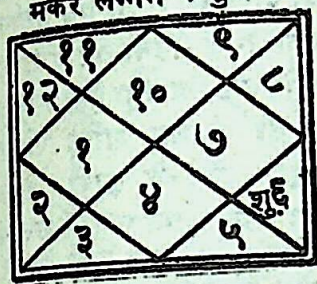 मकर
११ ९
१२ १० ८
१ ७
२ ४ शु६
३ ५